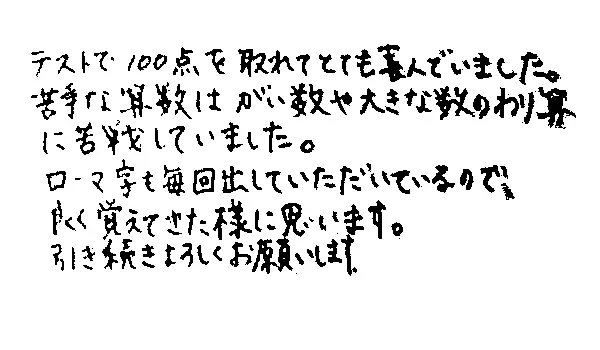 テストで100点を取れてとても喜んでいました。
苦手な算数は がい数や大きな数のわり算
に苦戦していました。
ローマ字も毎回出していただいているので、
良く覚えてきた様に思います。
引き続きよろしくお願いします